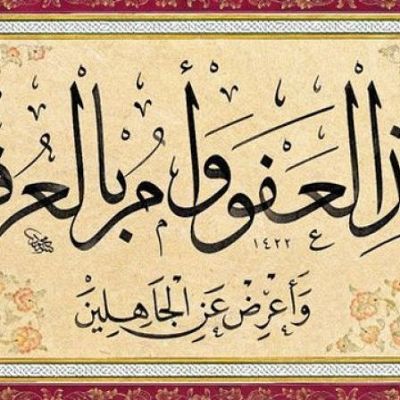 ذِ الْعَفْوَ وَأْمُرْ بِالْعُرْف
١٤٢٢
وَأَعْرِضْ عَنِ الْجَاهِلِينَ